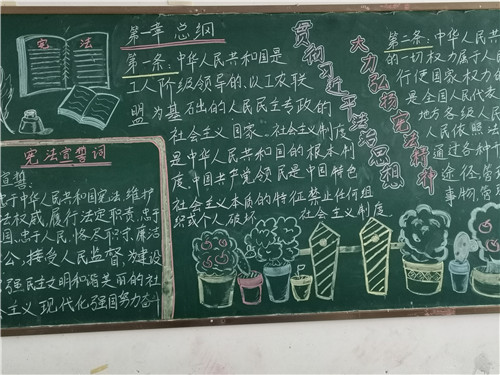 宪法
宪法宣誓词
宣誓:
忠于中华人民共和国宪法,维护
法权威,履行法定职责,忠于
国、忠于人民,恪尽职守、廉洁
公,接受人民监督,为建设
强民主文明和谐美丽的社
主义现代化强国努力奋斗
第一章 总纲
第一条:中华人民共和国是
工人阶级领导的、以工农联
盟为基础的人民民主专政的
社会主义国家。社会主义制度
是中华人民共和国的根本制
度。中国共产党领民是中国特色
社会主义本质的特征。禁止任何组
织或个人破坏社会主义制度。
贯彻习近平法治思想
大力弘扬宪法精神
第二条:中华人民
的一切权力属于人
行使国家权力
是全国人民代表
地方各级人民
人民依照
通过各种
途径,管
事物,管